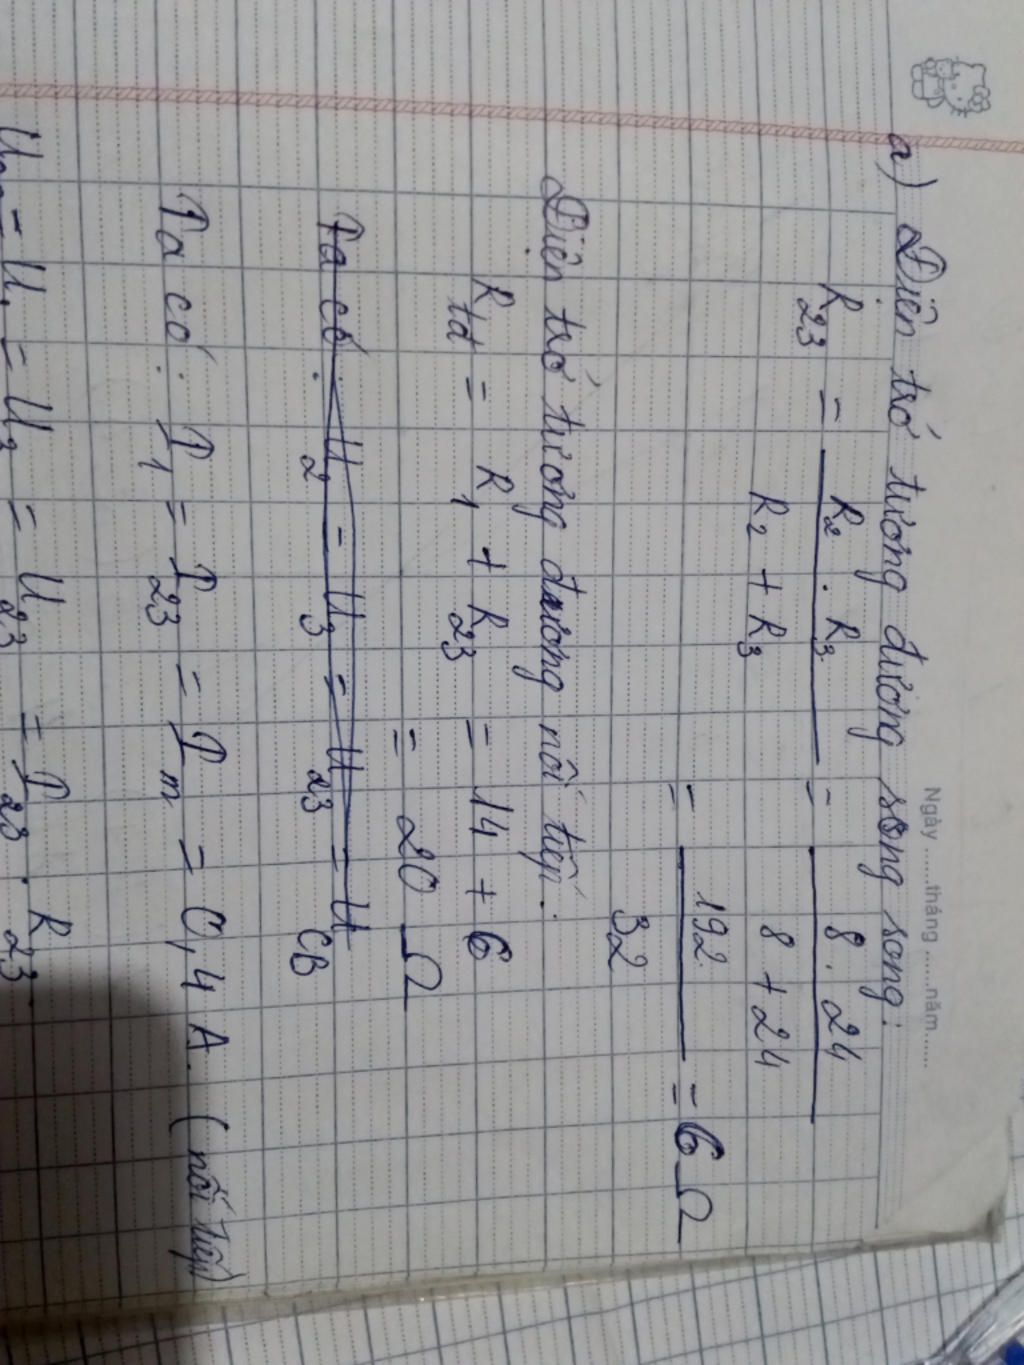 Ngày ......tháng ......năm......
a) Điện trở tương đương song song:
R₂₃ = R₂ . R₃ / R₂ + R₃ = 8 . 24 / 8 + 24
= 192 / 32 = 6 Ω
Điện trở tương đương nối tiếp:
Rtđ = R₁ + R₂₃ = 14 + 6
= 20 Ω
Ta có: U₂ = U₃ = U₂₃ = U CB
Ta có: I₁ = I₂₃ = Im = 0,4 A. (nối tiếp)
= U₂ = U₃ = U₂₃ = I₂₃ . R₂₃.